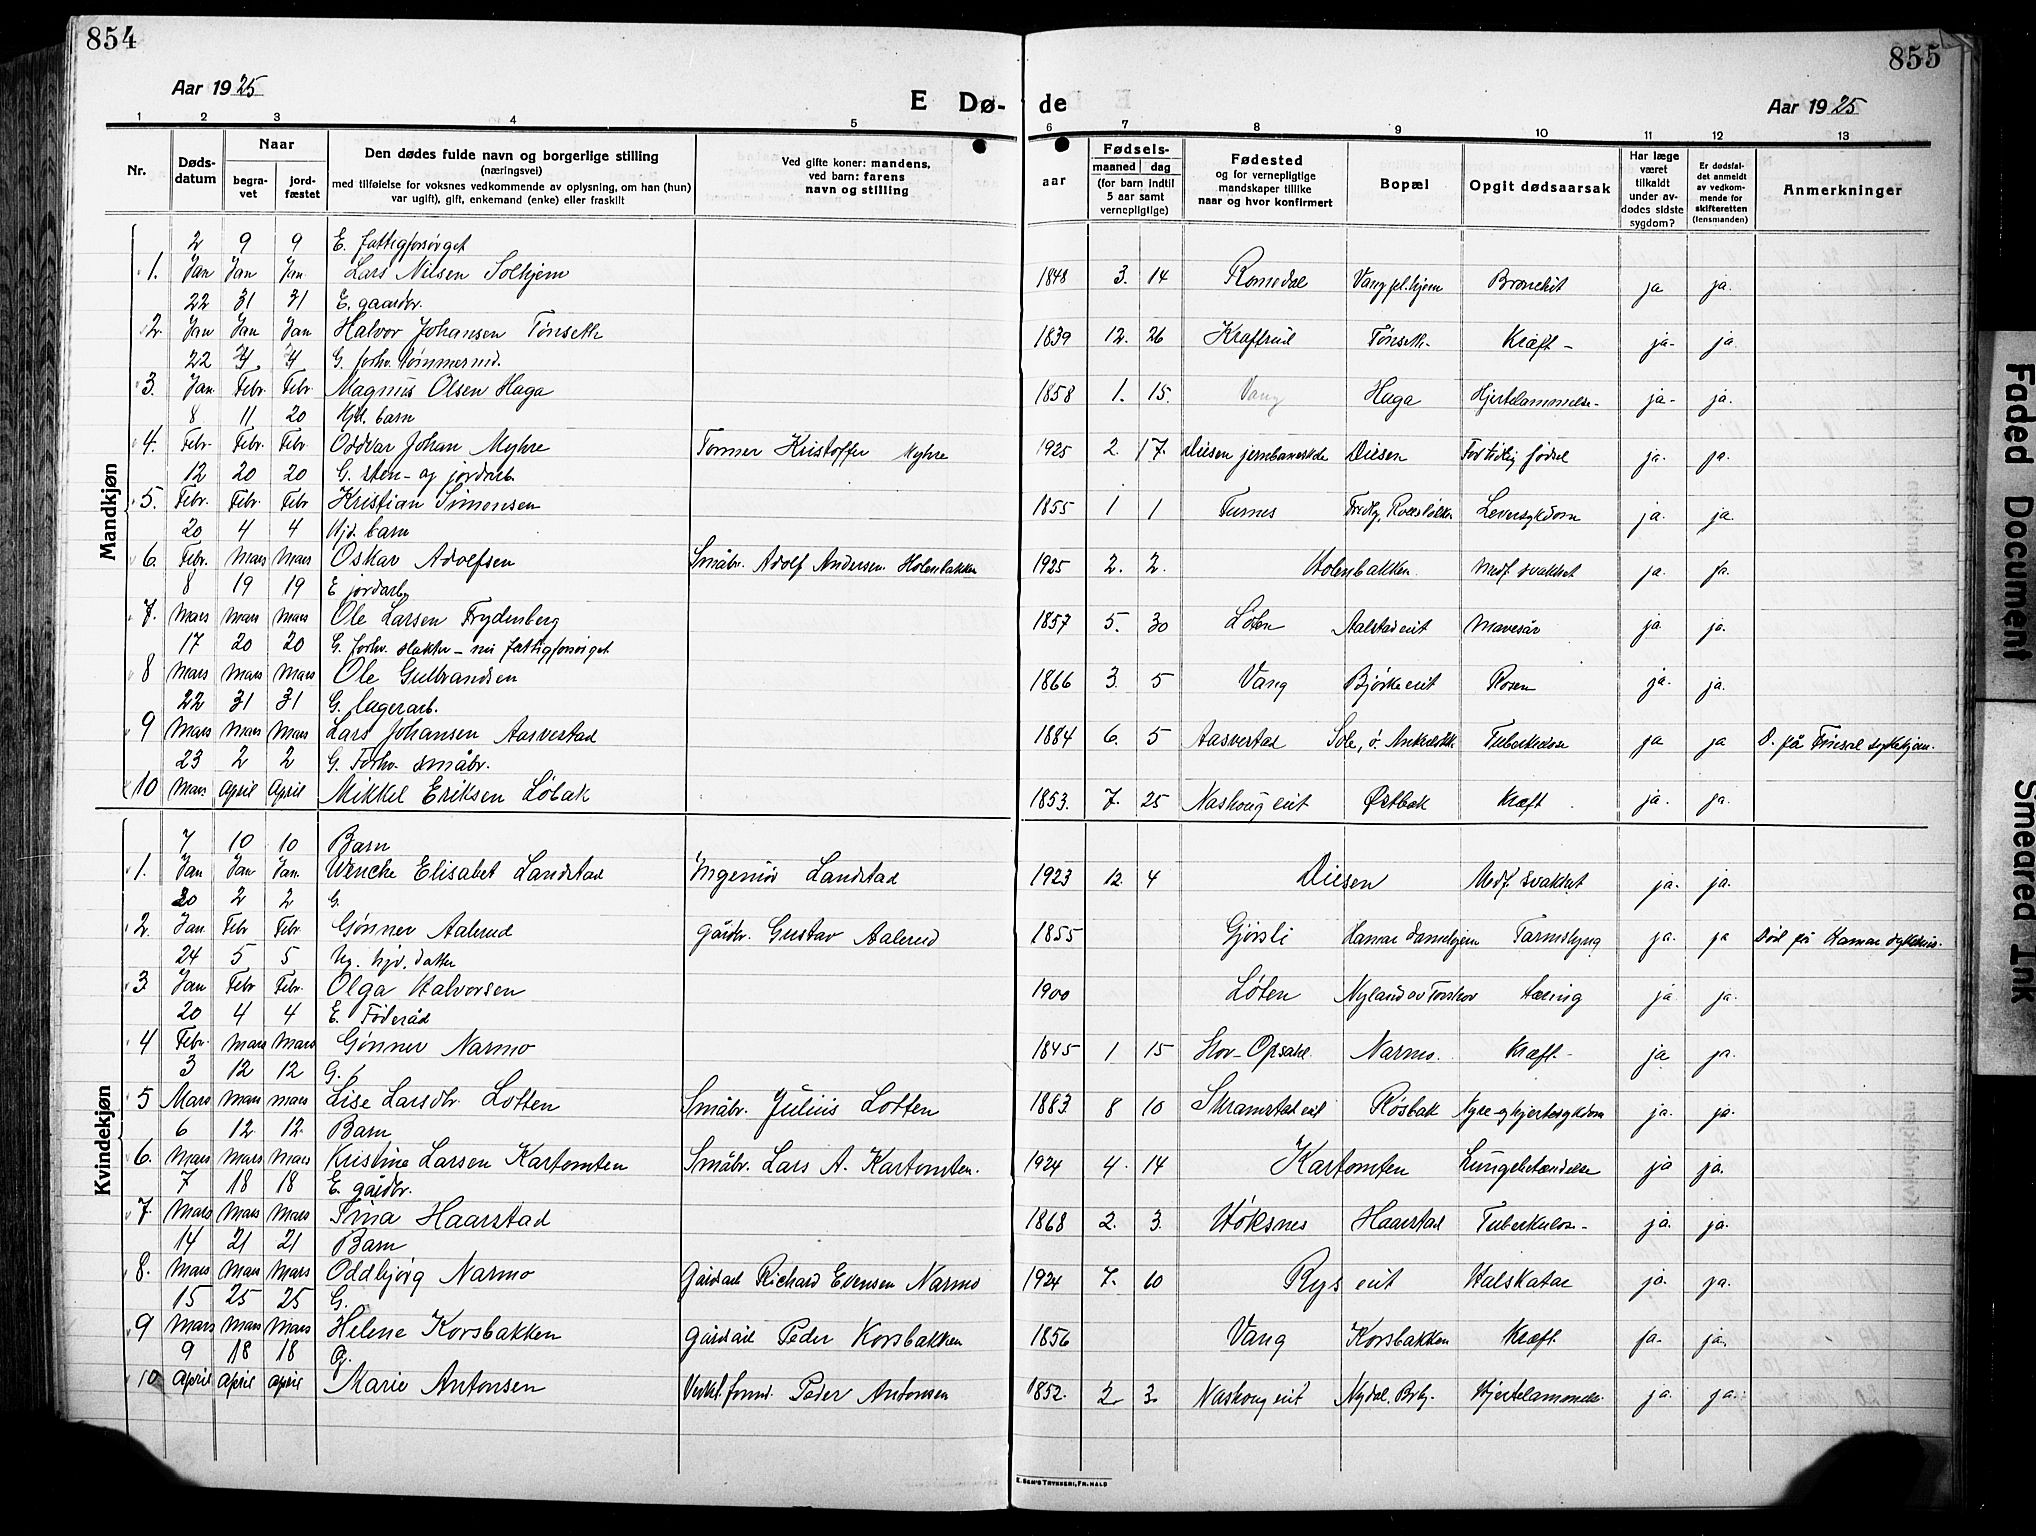 854
855
Aar 1925
E Dø- de
Aar 1925
1 2 3 4 5 6 7 8 9 10 11 12 13
Nr.
Døds-
datum
Naar
begra-
vet
jord-
fæstet
Den dødes fulde navn og borgerlige stilling
(næringsvei)
med tilføielse for voksnes vedkommende av oplysning, om han (hun)
var ugift), gift, enkemand (enke) eller fraskilt
Ved gifte koner: mandens,
ved barn: farens
navn og stilling
Fødsels-
aar
maaned dag
(for barn indtil
5 aar samt
vernepligtige)
Fødested
og for vernepligtige
mandskaper tillike
naar og hvor konfirmert
Bopæl
Opgit dødsaarsak
Har læge
været
tilkaldt
under av-
dødes sidste
sygdom?
Er dødsfal-
det anmeldt
av vedkom-
mende for
skifteretten
(lensmanden)
Anmerkninger
Mandkjøn
2 9 9 E. fattigforsørget
1. Jan Jan Jan. Lars Nilsen Solhjem 1848 3. 14 Romedal Vang pl.hjem Bronchit ja ja.
22 31 31 E. gaardbr.
2. Jan Jan Jan Halvor Johansen Tønseth 1839 12. 26 Kraftrud Tønseth- Kræft- ja- ja.
22 4 4 G. forhv. tømmermd.
3. Jan Febr Febr. Magnus Olsen Haga 1858 1. 15. Vang Haga Hjertelammelse- ja- ja.
8 11 20 Hjd. barn
4. Febr. Febr. Febr. Oddvar Johan Myhre Tømmer Kristoffer Myhre 1925 2. 17. Diesen Diesen For tidlig fødsel ja. ja.
12 20 20 G. sten- og jordarb.
5. Febr. Febr. Febr Kristian Simensen 1855 1 1 Furnes Leversykdom ja. ja.
20 4 4 Hjd. barn
6. Febr. Mars Mars Oskar Adolfsen Småbr. Adolf Andersen Holenbakken 1925 2. 2. Holenbakken Medf. svakhet ja. ja.
8 19 19 E jordarb
7. Mars Mars Mars Ole Larsen Frydenberg 1857 5. 30 Løten Aalstad eie Mavesår ja ja.
17 20 20 G. forhv. slakter- nu fattigforsørget
8 Mars Mars Mars Ole Gulbrandsen 1866 3. 5 Vang Bjørke eie Rosen ja. ja.
22 31 31 G. lagerarb.
9 Mars Mars Mars Lars Johansen Aasvestad 1884 6. 5 Aasvestad Sole, ø. Tuberkulose ja ja D. på Finsal sykehjem.
23 2 2 G. Forhv. småbr.
10 Mars April April Mikkel Eriksen Løbak 1853. 7. 25 Naskoug eie Østbak Kræft. ja. ja.
Kvindekjøn
7 10 10 Barn
1. Jan Jan Jan. Wenche Elisabet Landstad Ingeniør Landstad 1923 12. 4 Diesen Medf. svakhet ja. ja.
20 2 2 G.
2. Jan Febr Febr. Gønner Aalerud gårdbr. Gustav Aalerud 1855 Gjørsli Hamar damehjem Tarmslyng ja. ja Død på Hamar sykehus.
24 5 5 Ug. hjv. datter
3 Jan Febr Febr. Olga Halvorsen 1900 Løten Nyland av Torshov tæring ja ja.
20 4 4 E. Føderåd
4 Febr. Mars Mars Gønner Narmo 1845 1 15 Hov-Opsahl Narmo. Kræft- ja ja.
3 12 12 G.
5 Mars Mars Mars Lise Larsdtr. Lotten Småbr. Julius Lotten 1883 8 10 Skramstad eie Røsbak Nyre- og hjertesykdom ja. ja.
6 12. 12. Barn
6. Mars Mars Mars Kristine Larsen Kartomten Småbr. Lars A. Kartomten. 1924 4. 14 Kartomten Lungebetændelse ja ja.
7 18 18 E. gårdbr.
7. Mars Mars Mars Sina Haarstad 1868 2. 3. Høksnes Haarstad Tuberkulose- ja. ja.
14 21 21 Barn
8. Mars Mars Mars Oddbjørg Narmo Gårdarb Richard Evensen Narmo 1924 7. 10 Rys eie Halskatar ja. ja.
15 25 25 G.
9 Mars Mars Mars Helene Korsbakken Gårdarb Peder Korsbakken 1856 Vang Korsbakken Kræft. ja. ja.
9 18 18 G.
10 April April April Marie Antonsen Verkt.formd. Peder Antonsen 1852. 2. 3. Naskoug eie Nydal, Brby. Hjertelammelse. ja. ja.
E. SEM'S TRYKKERI, FR.HALD
Faded Document
Smeared Ink